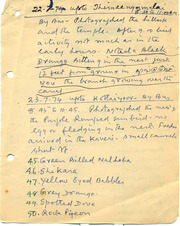 22.7.74 upto Thirualangamala
By Bus - Photographed the
and the temple. After 9
activity not much as in the
early hours. Noted a Black
Drongo sitting in the nest just
12 feet from ground in
the branch growing over the
23.7.74 upto By Bus
Photographed the nest of
the Purple Rumped sunbird - no
egg or fledgling in the nest. Fresh
arrived in the Kaveri. Small
45. Green Billed Malkoha
46. Shikara
47. Yellow Eyed Babbler
48. Grey Drongo
49. Spotted Dove
50. Rock Pigeon